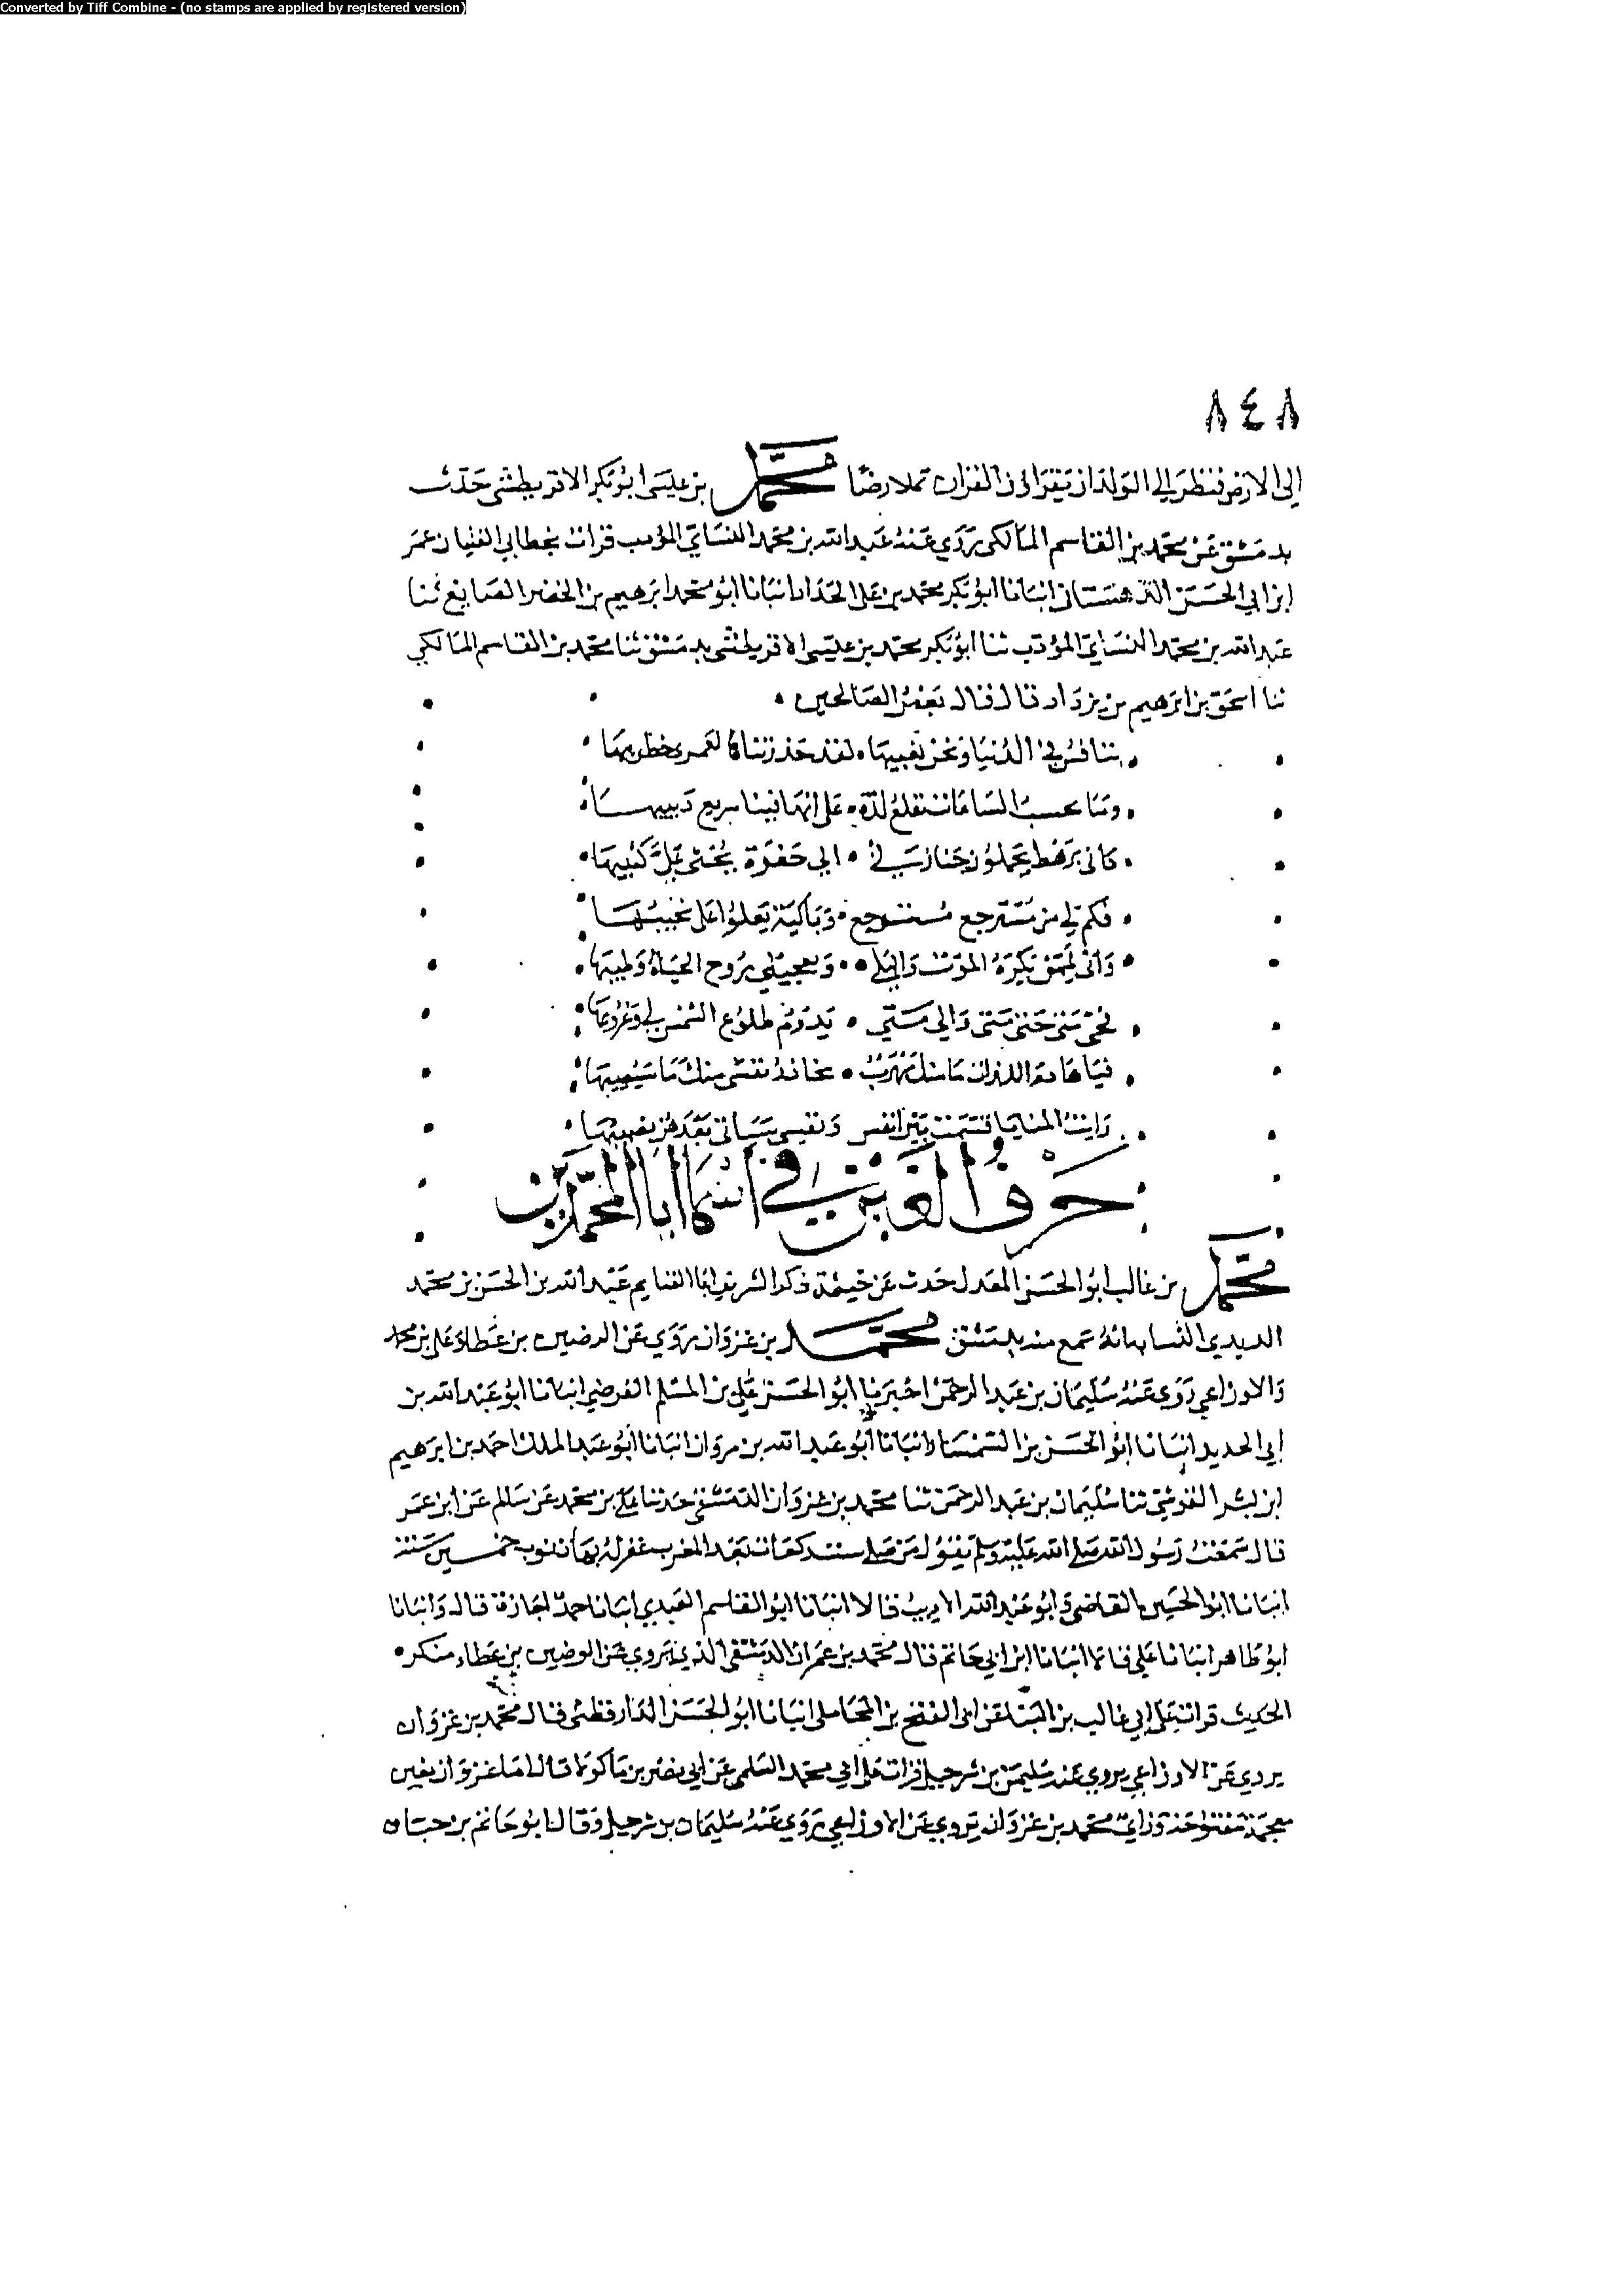 Converted by Tiff Combine - (no stamps are applied by registered version)
٨٤٨
الى الارض فنظر الى الولد ان يقرا في القران تملا رضا محمد بن عيسى ابو بكر الاقريطشي حدث
بدمشق عن محمد بن القاسم المالكي روي عنه عبد الله بن محمد النسائي المؤدب قرات بخط ابي الفتيان عمر
ابن ابي الحسن الدهستاني انبانا ابو بكر محمد بن علي الحداد انبانا ابو محمد ابرهيم بن الخضر الصايغ ثنا
عبد الله بن محمد النسائي المؤدب ثنا ابو بكر محمد بن عيسى الاقريطشي بدمشق ثنا محمد بن القاسم المالكي
ثنا اسحق بن ابرهيم بن يزداد قال قال بعض الصالحين
ننافس في الدنيا ونحن نعيبها لقد حذرتناها لعمري خطوبها
وما نحسب الساعات تقطع لذة على انها فينا سريع دبيبها
كاني برهط يحملون جنازتي الى حفرة يحثى علي كثيبها
فكم لي من مسترجع متوجع وباكية يعلوا على نحيبها
واني لممن يكره الموت والبلى ويعجبني روح الحياة وطيبها
فحتى متى حتى متى والى متى يدوم طلوع الشمس لي وغروبها
فيا هادم اللذات ما منك مهرب تحاذر نفسي منك ما سيصيبها
رايت المنايا قسمت بين انفس ونفسي سياتي بعدهن نصيبها
حرف الغين في اسما ابا المحمدين
محمد بن غالب ابو الحسن المعدل حدث عن خيثمة ذكر الشريف ابا الغنايم عبد الله بن الحسن بن محمد
الزيدي النسابة انه سمع منه بدمشق محمد بن غزوان روي عن الوضين بن عطا وعلي بن محمد
والاوزاعي روى عنه سليمان بن عبد الرحمن اخبرنا ابو الحسن علي بن المسلم الفرضي انبانا ابو عبد الله بن
ابي الحديد انبانا ابو الحسن بن السمسار انبانا ابو عبد الله بن مروان انبانا ابو عبد الملك احمد بن ابرهيم
ابن بشر القرشي ثنا سليمان بن عبد الرحمن ثنا محمد بن غزوان الدمشقي حدثنا علي بن محمد عن سالم عن ابن عمر
قال سمعت رسول الله صلى الله عليه وسلم يقول من صلى ست ركعات بعد المغرب غفر له بها ذنوب خمسين سنة
انبانا ابو الحسين القاضي وابو عبد الله الاديب قالا انبانا ابو القاسم العبدي انبانا حمد اجازة قال وانبانا
ابو طاهر انبانا علي قالا انبانا ابن ابي حاتم قال محمد بن غزوان الدمشقي الذي يروي عن الوضين بن عطاء منكر
الحديث قرات على ابي غالب بن البنا عن ابي الفتح بن المحاملي انبانا ابو الحسن الدارقطني قال محمد بن غزوان
يروي عن الاوزاعي يروي عنه سليمن بن شرحبيل قرات على ابي محمد السلمي عن ابي نصر بن ماكولا قال اما غزوان بغين
معجمة مفتوحة وزاي محمد بن غزوان يروي عن الاوزاعي روي عنه سليمان بن شرحبيل وقال ابو حاتم بن حبان